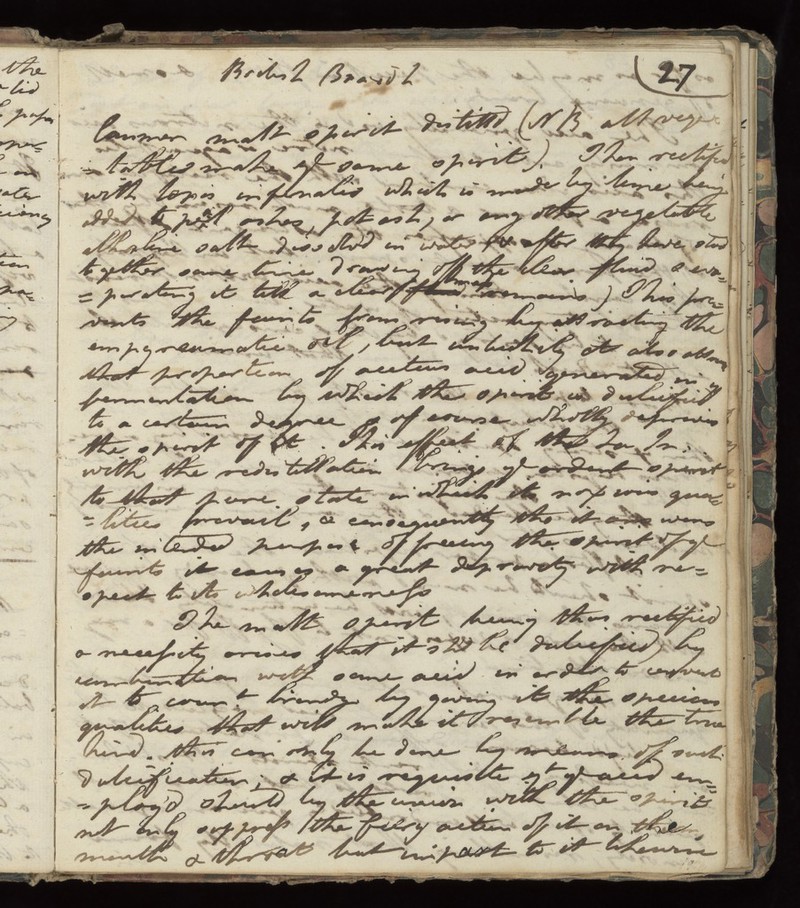 27
British Brandy
Common malt spirit distilld (NB all vege=
=tables make ye same spirit). Then rectified
with lapis infernalis which is made by lime being
added to pearl ashes, pot ash, or any other vegetable
alkaline salt dissolved in water (& after they have stood
together some time drawing off the clear fluid & eva=
=porating it till a clear mass remains) This pre=
vents the faints from rising by attracting the
empyreumatic oil, but unluckily it also
that proportion of acetous acid generated in ye
fermentation by which the spirit is dulcified
to a certain degree & of course wholly deprives
the spirit of it. This effect of the La. In.
with the redistillation brings ye ardent spirit
to that pure state in which its noxious qua=
=lities prevail, & consequently tho it
the intended purpose of freeing the spirit of ye
faints it causes a great depravity with re=
spect to its wholesomeness
The malt spirit being thus rectified
a necessity arises that it shd be dulcified by
combination with some acid in order to convert
it to brandy by giving it the specious
qualities that will make it resemble the true
kind, this can only be done by means of such
dulcification; & it is requisite yt ye acid em=
=ploy'd should by the union with the spirits
not only suppress the fiery action of it on the
mouth & throat but impart to it likewise
the